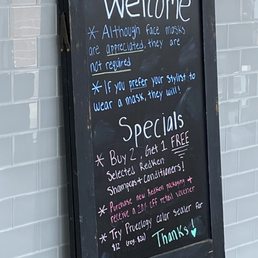 Welcome
* Although face masks
are appreciated, they are
not required
* If you prefer your stylist to
wear a mask, they will!
Specials
* Buy 2, Get 1 FREE
Selected Redken
Shampoos + Conditioners!
* Purchase new Redken packaging +
receive a 20% OFF retail voucher
* Try Pureology color sealer for
$12 (reg. $20)
Thanks